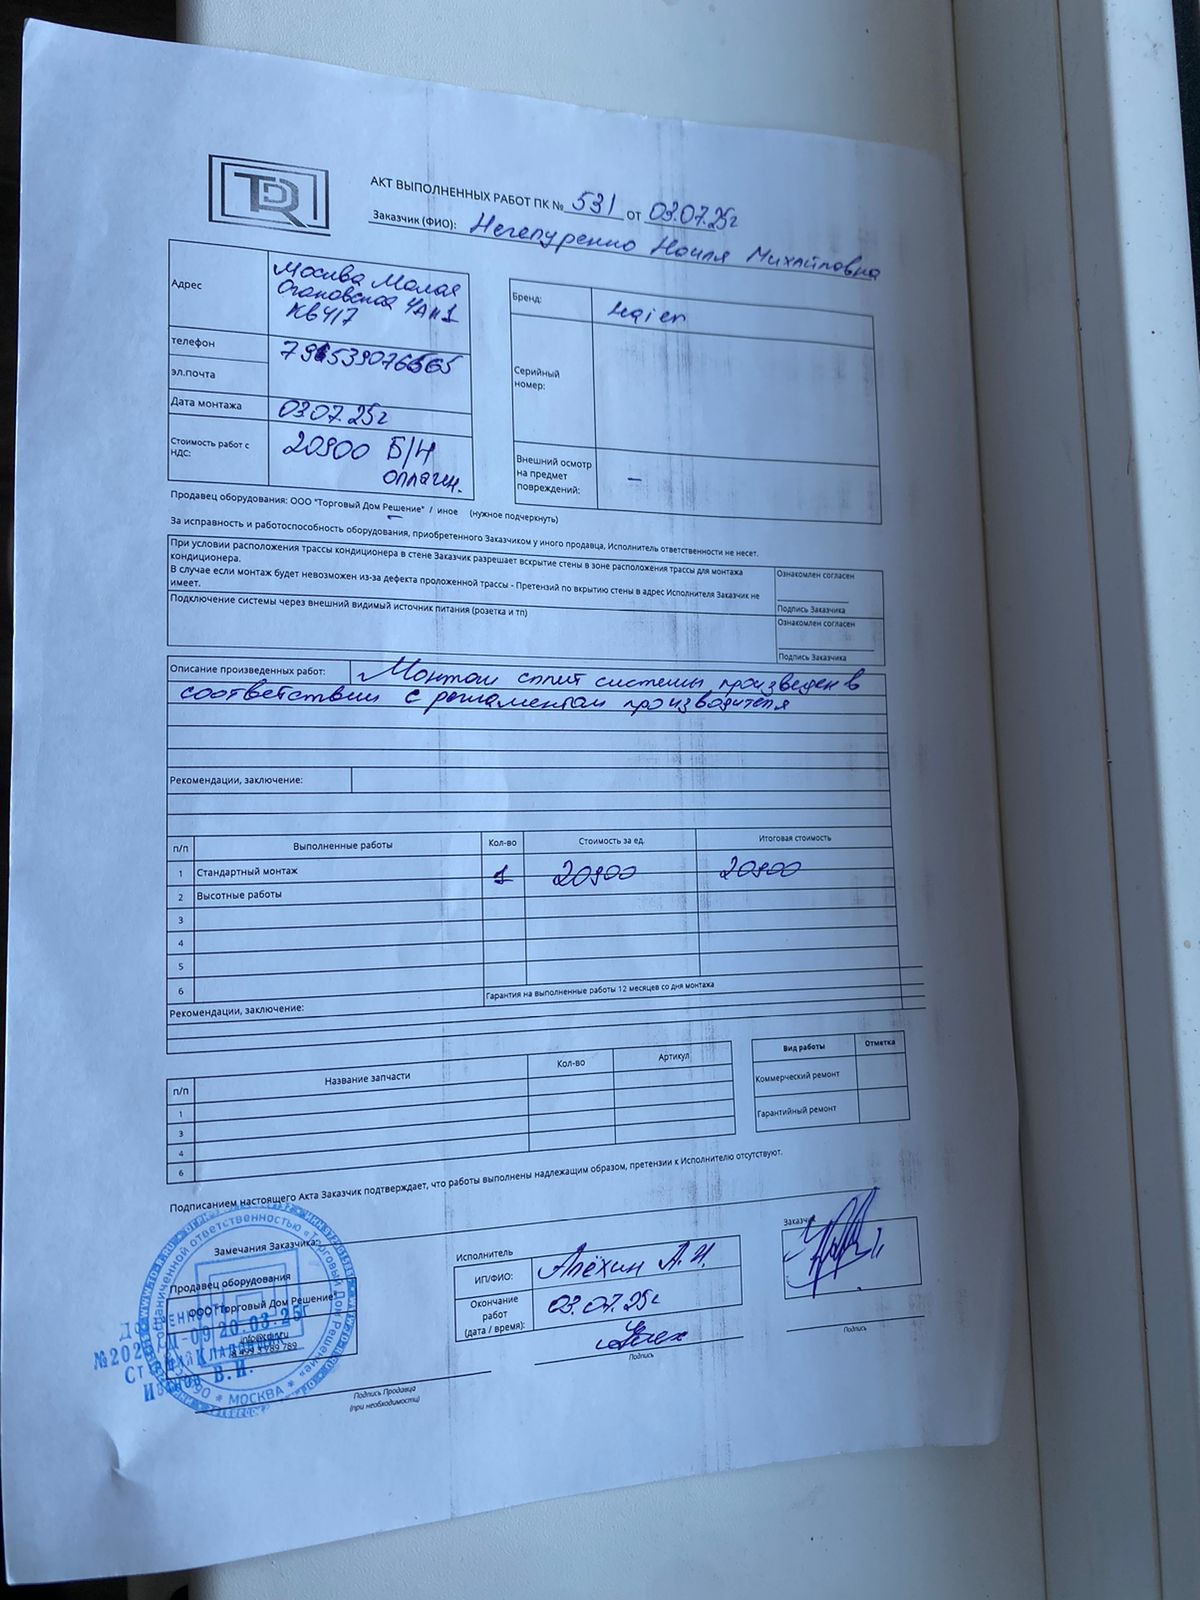 TDR
АКТ ВЫПОЛНЕННЫХ РАБОТ ПК № 531 от 03.07.25г
Заказчик (ФИО): Михайловна
Адрес
Москва Малая
4А к1
кв 417
телефон
эл.почта
Дата монтажа
03.07.25г
Стоимость работ с НДС:
20900 Б/Н
оплачен.
Бренд:
Haier
Серийный
номер:
Внешний осмотр
на предмет
повреждений:
–
Продавец оборудования: ООО "Торговый Дом Решение" / иное (нужное подчеркнуть)
За исправность и работоспособность оборудования, приобретенного Заказчиком у иного продавца, Исполнитель ответственности не несет.
При условии расположения трассы кондиционера в стене Заказчик разрешает вскрытие стены в зоне расположения трассы для монтажа
кондиционера.
В случае если монтаж будет невозможен из-за дефекта проложенной трассы - Претензий по вкрытию стены в адрес Исполнителя Заказчик не
имеет.
Ознакомлен согласен
Подпись Заказчика
Подключение системы через внешний видимый источник питания (розетка и тп)
Ознакомлен согласен
Подпись Заказчика
Описание произведенных работ: Монтаж сплит системы произведен в
соответствии с регламентом производителя
Рекомендации, заключение:
п/п Выполненные работы Кол-во Стоимость за ед. Итоговая стоимость
1 Стандартный монтаж 1 20900 20900
2 Высотные работы
3
4
5
6
Гарантия на выполненные работы 12 месяцев со дня монтажа
Рекомендации, заключение:
п/п Название запчасти Кол-во Артикул
1
3
4
6
Вид работы Отметка
Коммерческий ремонт
Гарантийный ремонт
Подписанием настоящего Акта Заказчик подтверждает, что работы выполнены надлежащим образом, претензии к Исполнителю отсутствуют.
Замечания Заказчика:
Продавец оборудования
ООО "Торговый Дом Решение"
Подпись Продавца
(при необходимости)
Исполнитель
ИП/ФИО: Алёхин А.И.
Окончание
работ
(дата / время):
03.07.25г
Подпись
Заказчик
Подпись
ограниченной ответственностью «Торговый Дом Решение»
* МОСКВА *
20.03.25г
В.И.